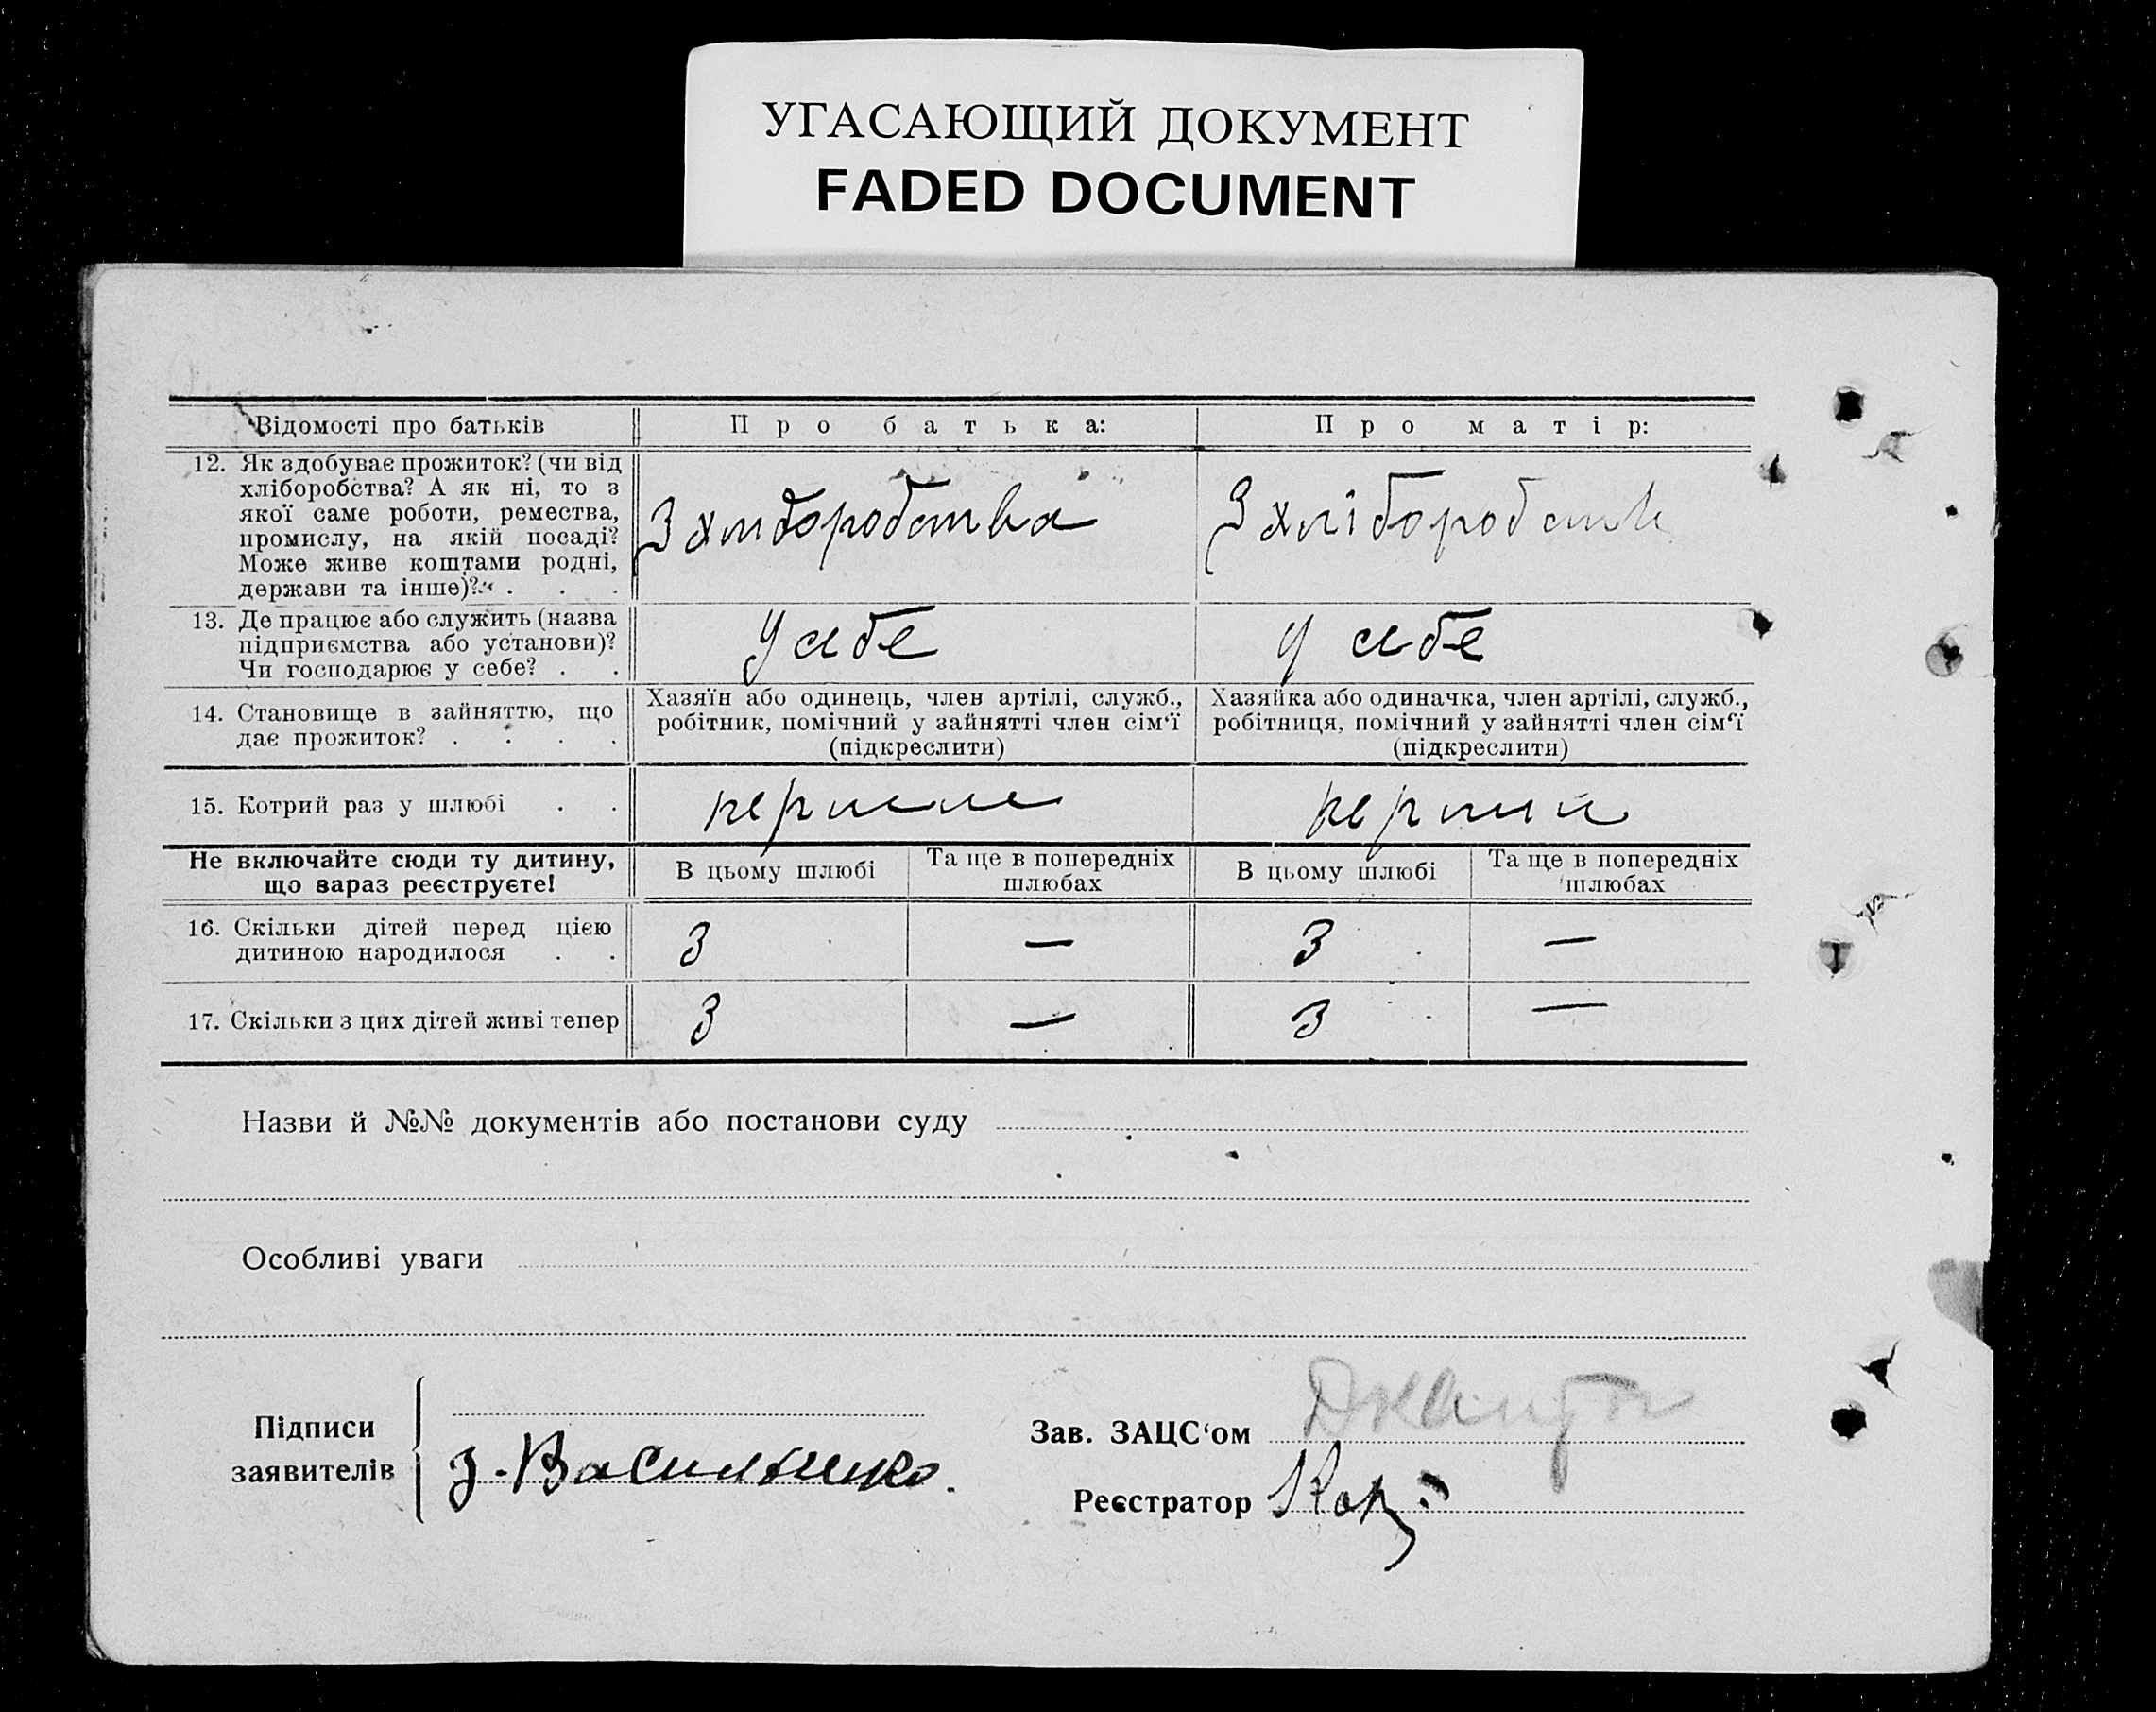 УГАСАЮЩИЙ ДОКУМЕНТ
FADED DOCUMENT
Відомості про батьків
Про батька:
Про матір:
12. Як здобуває прожиток? (чи від
хліборобства? А як ні, то з
якої саме роботи, ремества,
промислу, на якій посаді?
Може живе коштами родні,
держави та інше)? . . .
З хліборобства
З хліборобств
13. Де працює або служить (назва
підприємства або установи)?
Чи господарює у себе? . .
У себе
У себе
14. Становище в зайняттю, що
дає прожиток? . . . .
Хазяїн або одинець, член артілі, служб.,
робітник, помічний у зайнятті член сім'ї
(підкреслити)
Хазяйка або одиначка, член артілі, служб.,
робітниця, помічний у зайнятті член сім'ї
(підкреслити)
15. Котрий раз у шлюбі . .
перший
перший
Не включайте сюди ту дитину,
що зараз реєструєте!
В цьому шлюбі
Та ще в попередніх
шлюбах
В цьому шлюбі
Та ще в попередніх
шлюбах
16. Скільки дітей перед цією
дитиною народилося . .
3
—
3
—
17. Скільки з цих дітей живі тепер
3
—
3
—
Назви й №№ документів або постанови суду
Особливі уваги
Підписи
заявителів
З. Васильченко.
Зав. ЗАЦС'ом
Реєстратор